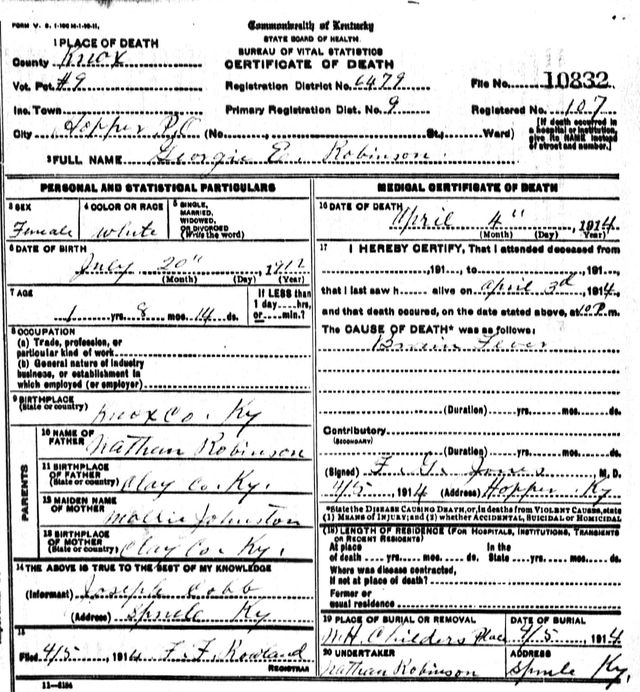 FORM V. S. 1-100 M-1-20-11.
Commonwealth of Kentucky
STATE BOARD OF HEALTH.
BUREAU OF VITAL STATISTICS
CERTIFICATE OF DEATH
1 PLACE OF DEATH
County Knox
Vot. Pct. #9
Inc. Town
City Hopper P.O. (No. St., Ward)
Registration District No. 6479
Primary Registration Dist. No. 9
File No. 10832
Registered No. 107
[If death occurred in a hospital or institution, give its NAME instead of street and number.]
2 FULL NAME Georgie E. Robinson.
PERSONAL AND STATISTICAL PARTICULARS
3 SEX
Female
4 COLOR OR RACE
White
5 SINGLE, MARRIED, WIDOWED, OR DIVORCED (Write the word)
6 DATE OF BIRTH
July 20" 1912
(Month) (Day) (Year)
7 AGE
1 yrs. 8 mos. 14 ds.
If LESS than 1 day.....hrs. or.....min.?
8 OCCUPATION
(a) Trade, profession, or particular kind of work
(b) General nature of industry business, or establishment in which employed (or employer)
9 BIRTHPLACE
(State or country) Knox Co. Ky
PARENTS
10 NAME OF FATHER Nathan Robinson
11 BIRTHPLACE OF FATHER (State or country) Clay Co. Ky.
12 MAIDEN NAME OF MOTHER Mollie Johnston
13 BIRTHPLACE OF MOTHER (State or country) Clay Co. Ky.
14 THE ABOVE IS TRUE TO THE BEST OF MY KNOWLEDGE
(Informant) Joseph Cobb
(Address) Sprule Ky
15
Filed 4/5, 1914 F. F. Rowland
REGISTRAR
11-5184
MEDICAL CERTIFICATE OF DEATH
16 DATE OF DEATH April 4" 1914
(Month) (Day) (Year)
17 I HEREBY CERTIFY, That I attended deceased from
, 191 , to , 191 ,
that I last saw h alive on April 3d, 1914,
and that death occured, on the date stated above, at 10 P. m.
The CAUSE OF DEATH* was as follows:
Brain Fever
(Duration) yrs. mos. ds.
Contributory
(SECONDARY)
(Duration) yrs. mos. ds.
(Signed) F. G. Jones M. D.
4/5, 1914 (Address) Hopper Ky
*State the DISEASE CAUSING DEATH, or, in deaths from VIOLENT CAUSES, state
(1) MEANS OF INJURY; and (2) whether ACCIDENTAL, SUICIDAL or HOMICIDAL
(18) LENGTH OF RESIDENCE (FOR HOSPITALS, INSTITUTIONS, TRANSIENTS OR RECENT RESIDENTS)
At place of death yrs. mos. ds. In the State yrs. mos. ds.
Where was disease contracted, If not at place of death?
Former or usual residence
19 PLACE OF BURIAL OR REMOVAL
M.H. Childers Place
DATE OF BURIAL
4/5, 1914
20 UNDERTAKER
Nathan Robinson
ADDRESS
Sprule Ky.